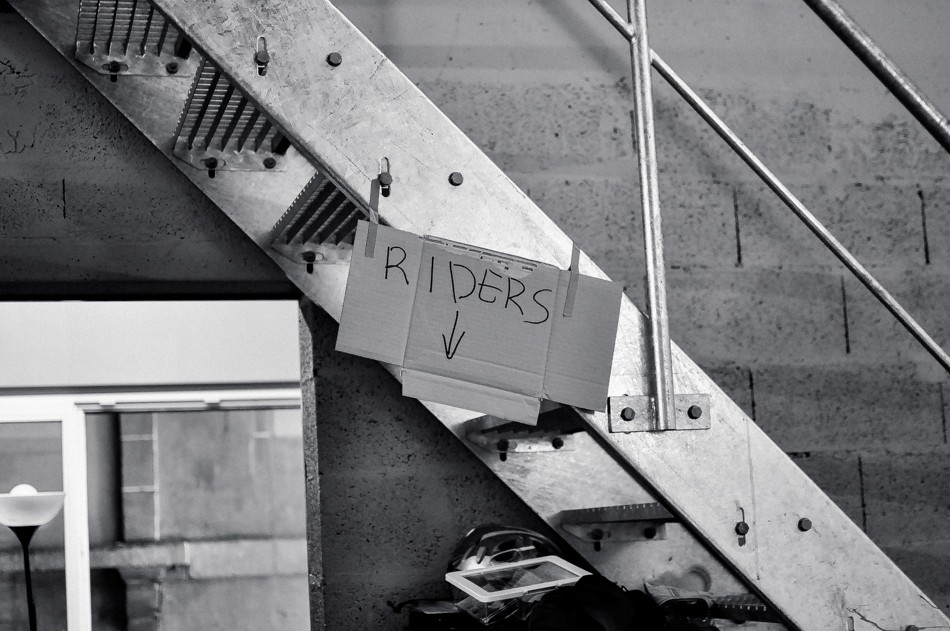 RIDERS
↓